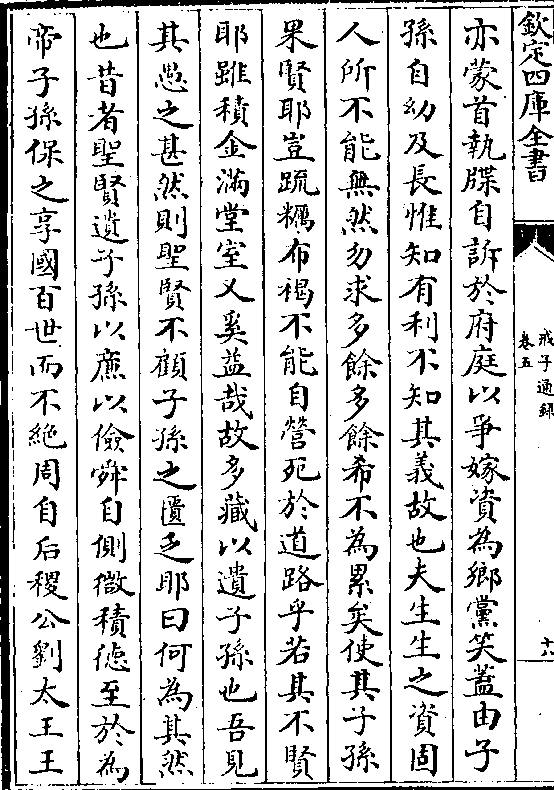 欽定四庫全書
戒子通録
卷五
六
亦蒙首執牒自訴於府庭以爭嫁資為鄉黨笑蓋由子
孫自幼及長惟知有利不知其義故也夫生生之資固
人所不能無然勿求多餘多餘希不為累矣使其子孫
果賢耶豈蔬糲布褐不能自營死於道路乎若其不賢
耶雖積金滿堂室又奚益哉故多藏以遺子孫也吾見
其愚之甚然則聖賢不顧子孫之匱乏耶曰何為其然
也昔者聖賢遺子孫以亷以儉舜自側微積徳至於為
帝子孫保之享國百世而不絶周自后稷公劉太王王